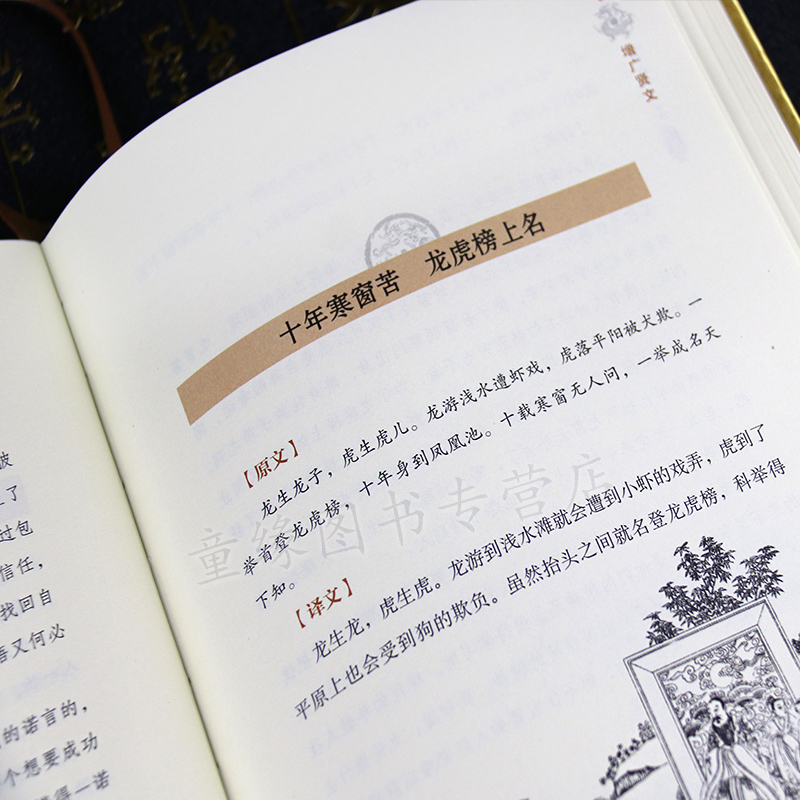 了
过包
信任，
找回自
又何必
的诺言的，
个想要成功
得一诺
增广贤文
十年寒窗苦 龙虎榜上名
【原文】
龙生龙子，虎生虎儿。龙游浅水遭虾戏，虎落平阳被犬欺。一
举首登龙虎榜，十年身到凤凰池。十载寒窗无人问，一举成名天
下知。
【译文】
龙生龙，虎生虎。龙游到浅水滩就会遭到小虾的戏弄，虎到了
平原上也会受到狗的欺负。虽然抬头之间就名登龙虎榜，科举得
童缘图书专营店